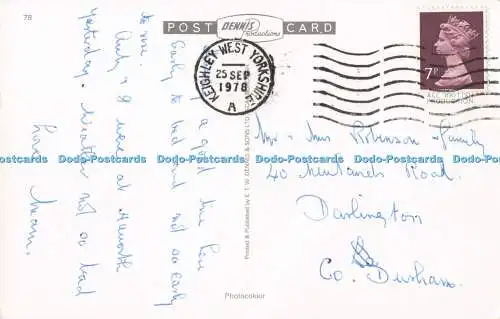 78
POST CARD
DENNIS
Productions
KEIGHLEY WEST YORKSHIRE
25 SEP
1978
A
7P
ALL BRITISH
PRODUCTION
Having a good time here
Early to bed but not so early
to rise.
& I were at Haworth
yesterday. Weather not so bad
Love
Mam.
Mr & Mrs Robinson & Family
40 Newlands Road.
Darlington
Co. Durham.
Printed & Published by E. T. W. DENNIS & SONS LTD
Photocolour
Dodo-Postcards Dodo-Postcards Dodo-Postcards Dodo-Postcards Dodo-Postcards